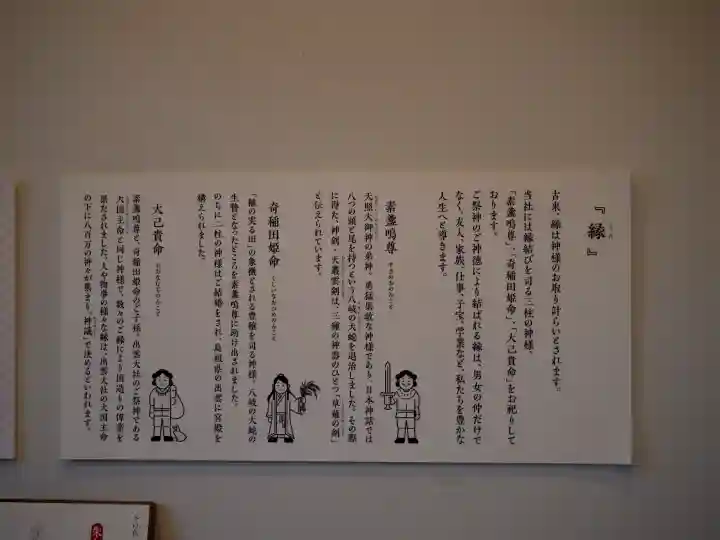 『縁』
えにし
古来、縁は神様のお取り計らいとされます。
当社には縁結びを司る三柱の神様、
「素盞鳴尊」・「奇稲田姫命」・「大己貴命」をお祀りして
おります。
ご祭神のご神徳により結ばれる縁は、男女の仲だけで
なく、友人、家族、仕事、子宝、学業など、私たちを豊かな
人生へと導きます。
素盞鳴尊 すさのおのみこと
天照大御神の弟神。勇猛果敢な神様であり、日本神話では
八つの頭と尾を持つという八岐の大蛇を退治しました。その際
に得た、神剣・天叢雲剣は、三種の神器のひとつ「草薙の剣」
と伝えられています。
奇稲田姫命 くしいなだひめのみこと
「稲の実る田」の象徴とされる豊穣を司る神様。八岐の大蛇の
生贄となったところを素盞鳴尊に助け出されました。
のちに二柱の神様はご結婚をされ、島根県の出雲に宮殿を
構えられました。
大己貴命 おおなむちのみこと
素盞鳴尊と、奇稲田姫命のご子様。出雲大社のご祭神である
大国主命と同じ神様で、数々のご縁により国造りの偉業を
果たされました。人や物事の様々な縁は、出雲大社の大国主命
の下に八百万の神々が集まり、「神議」で決めるといわれます。